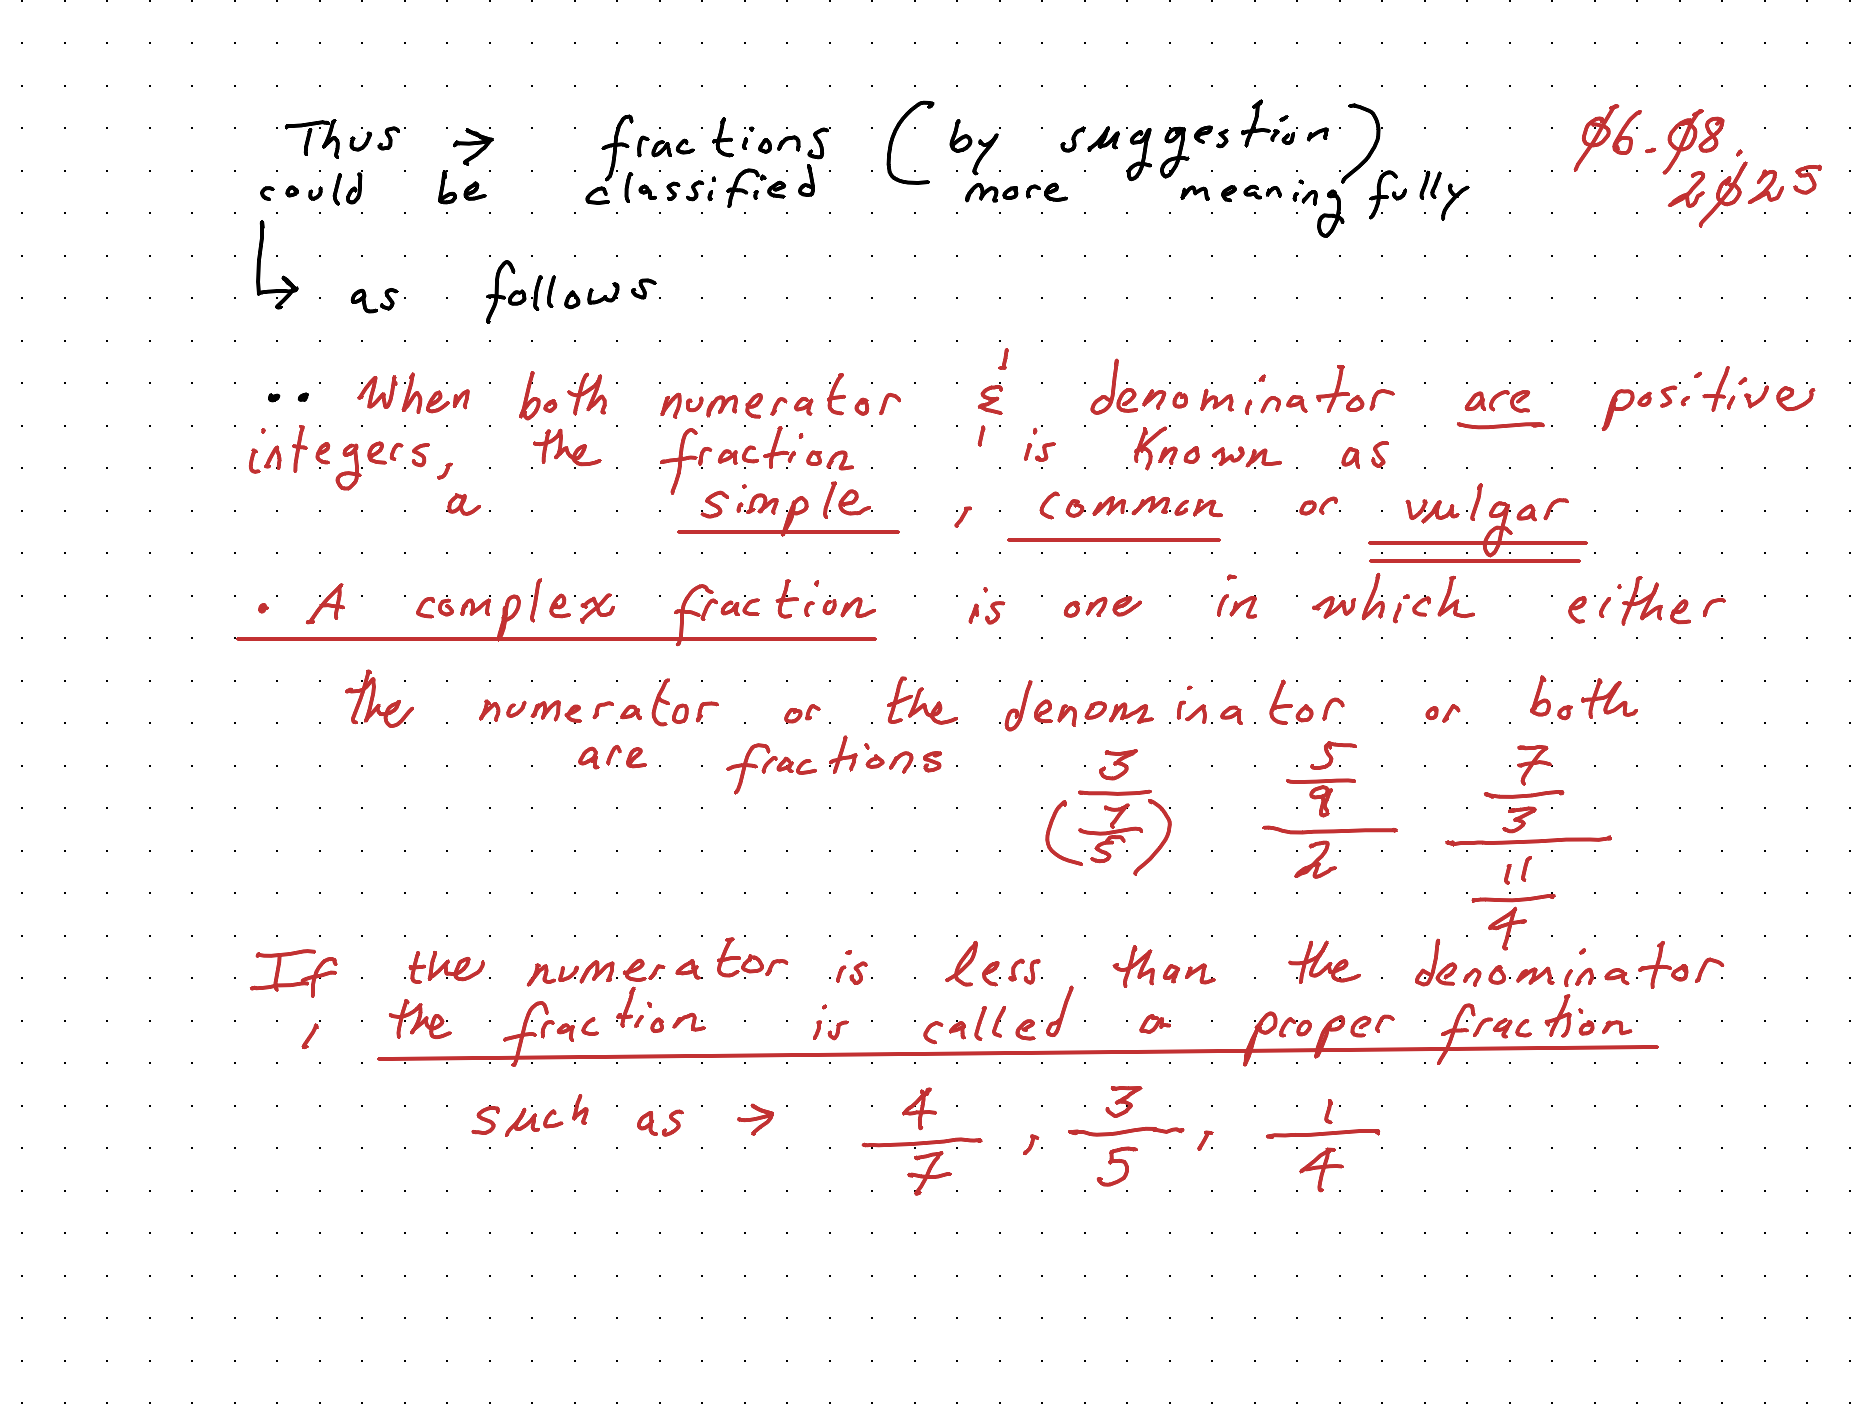 Thus → fractions (by suggestion)
could be classified more meaningfully
06.08.
2025
↳ as follows
•• When both numerator & denominator are positive
integers, the fraction is known as
a simple, common or vulgar
• A complex fraction is one in which either
the numerator or the denominator or both
are fractions 3/(7/5) (5/9)/2 (7/3)/(11/4)
If the numerator is less than the denominator
, the fraction is called a proper fraction
such as → 4/7, 3/5, 1/4